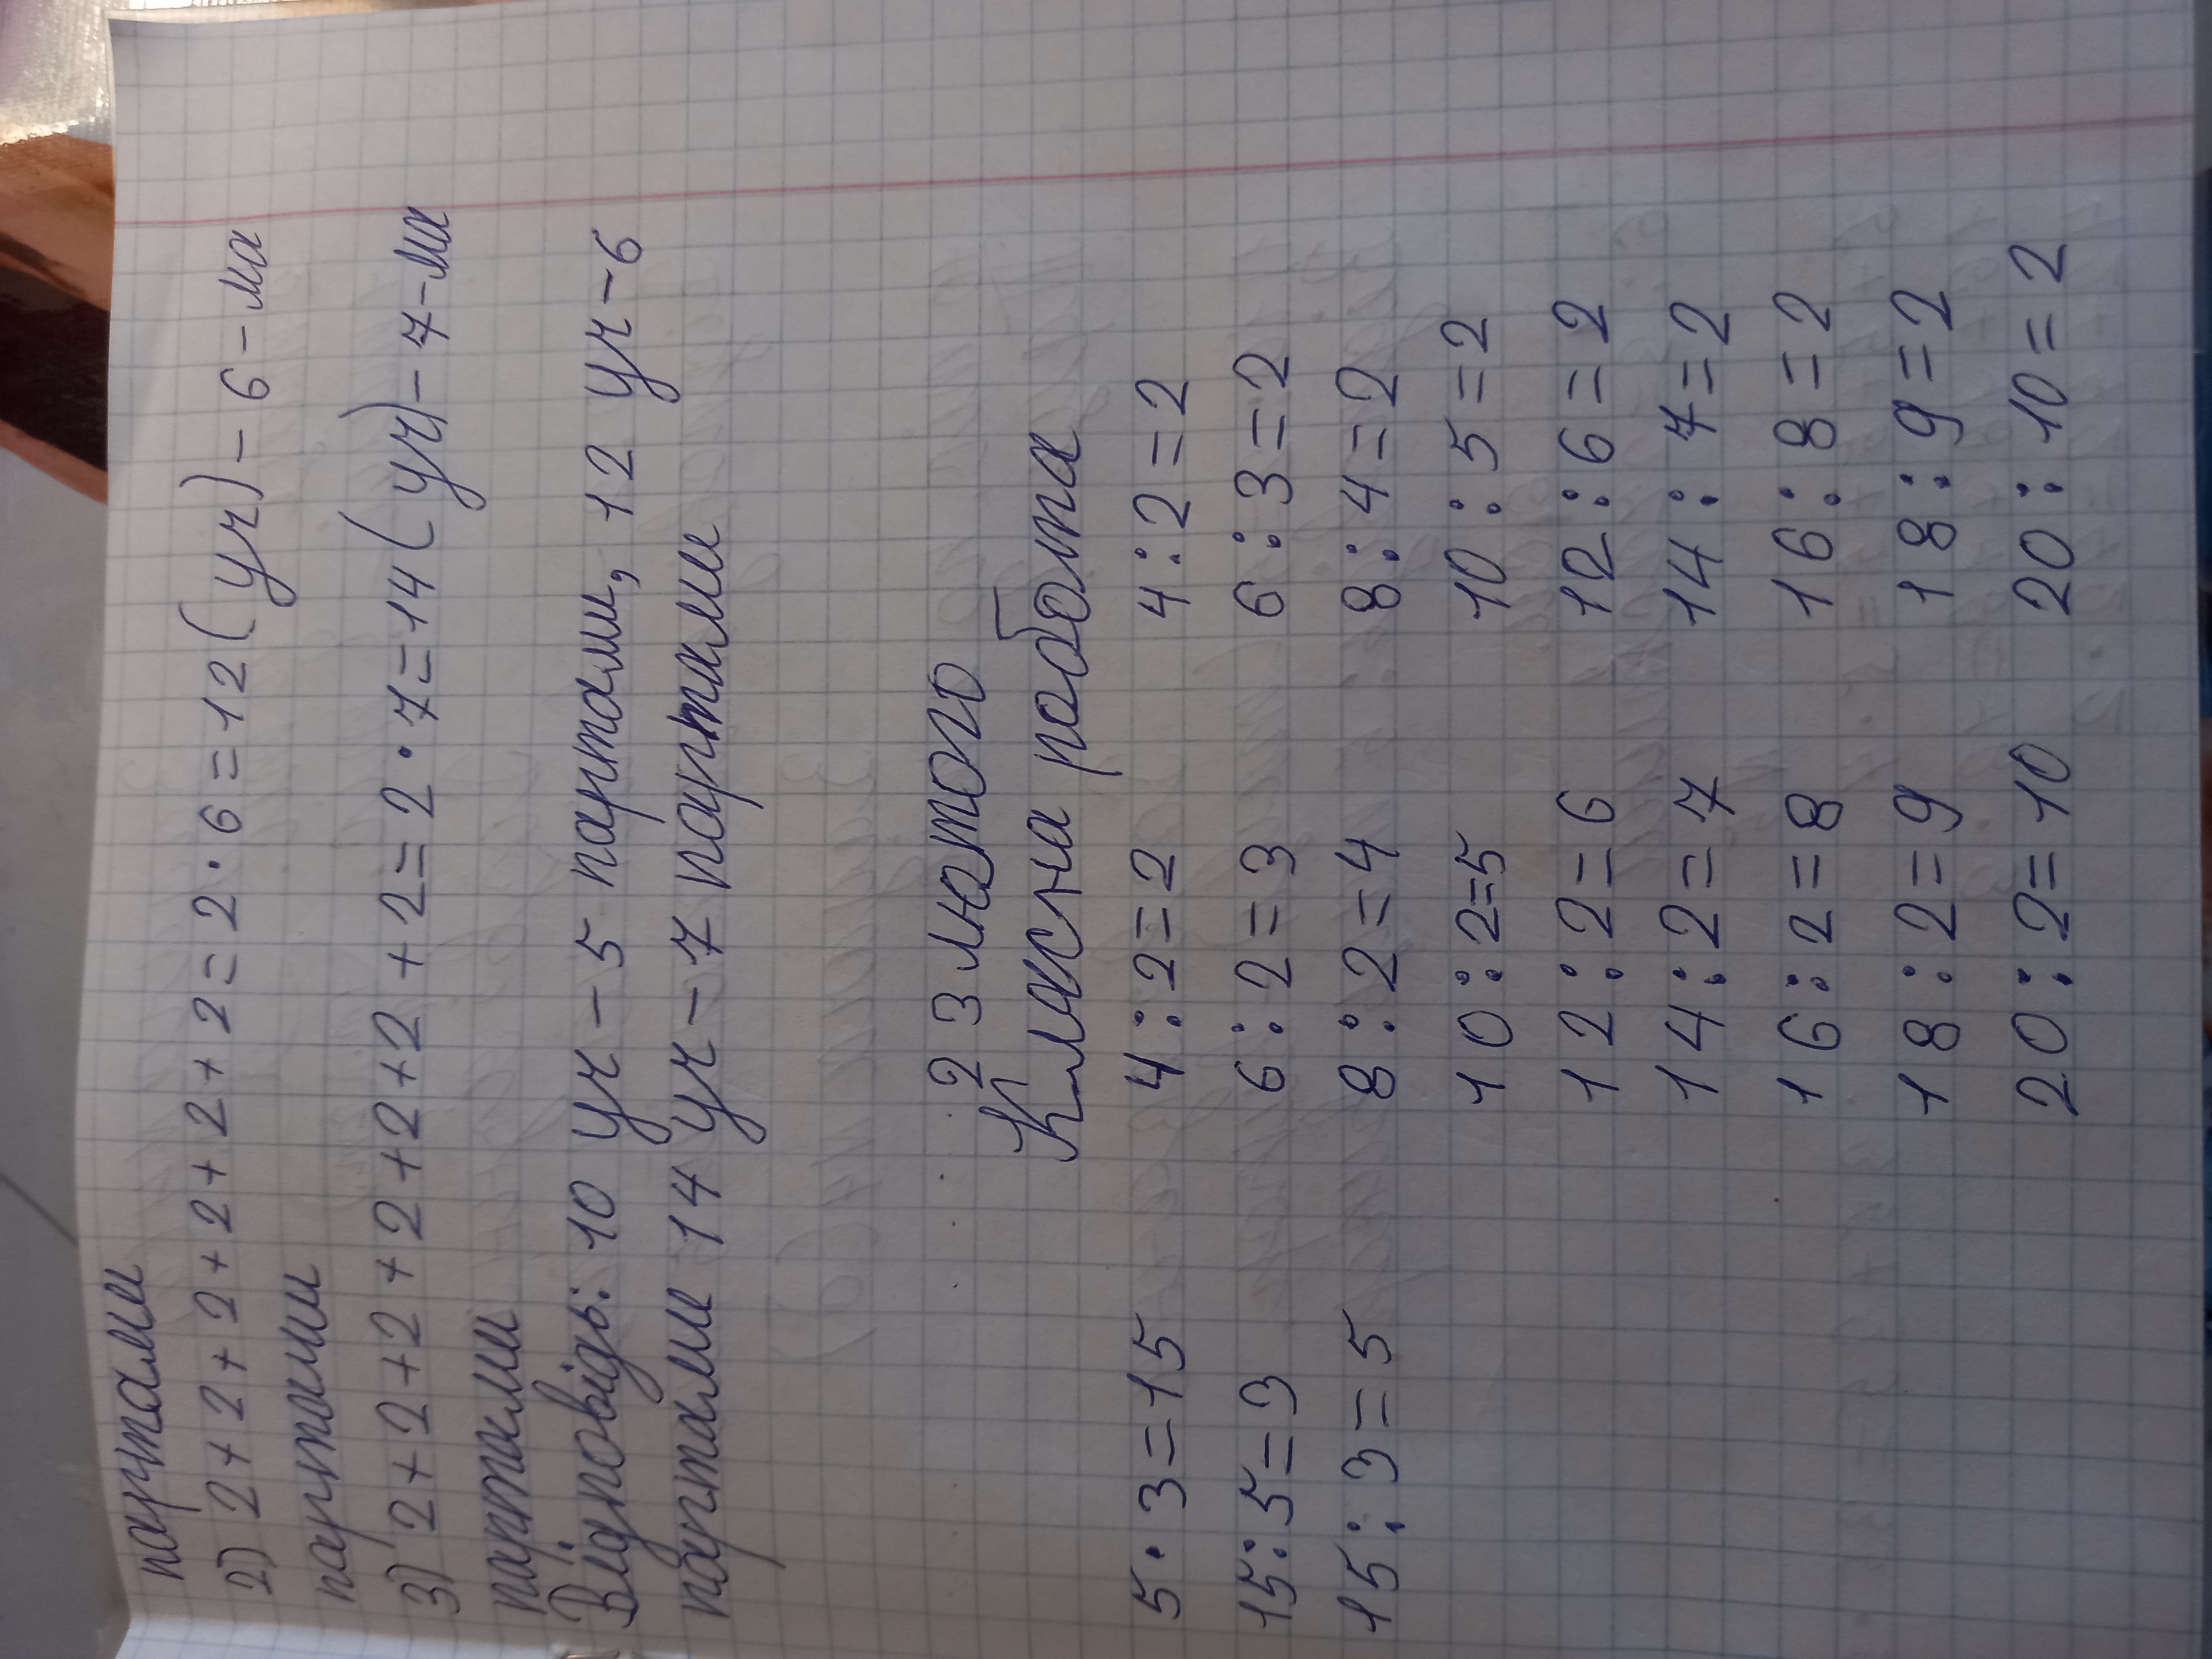 партами
2) 2+2+2+2+2+2=2·6=12(уч)-6-ма
партами
3) 2+2+2+2+2+2+2=2·7=14(уч)-7-ма
партами
Відповідь: 10 уч-5 партами, 12 уч-6
партами 14 уч-7 партами
23 лютого
Класна робота
5·3=15 4:2=2 4:2=2
15:5=3 6:2=3 6:3=2
15:3=5 8:2=4 8:4=2
10:2=5 10:5=2
12:2=6 12:6=2
14:2=7 14:7=2
16:2=8 16:8=2
18:2=9 18:9=2
20:2=10 20:10=2